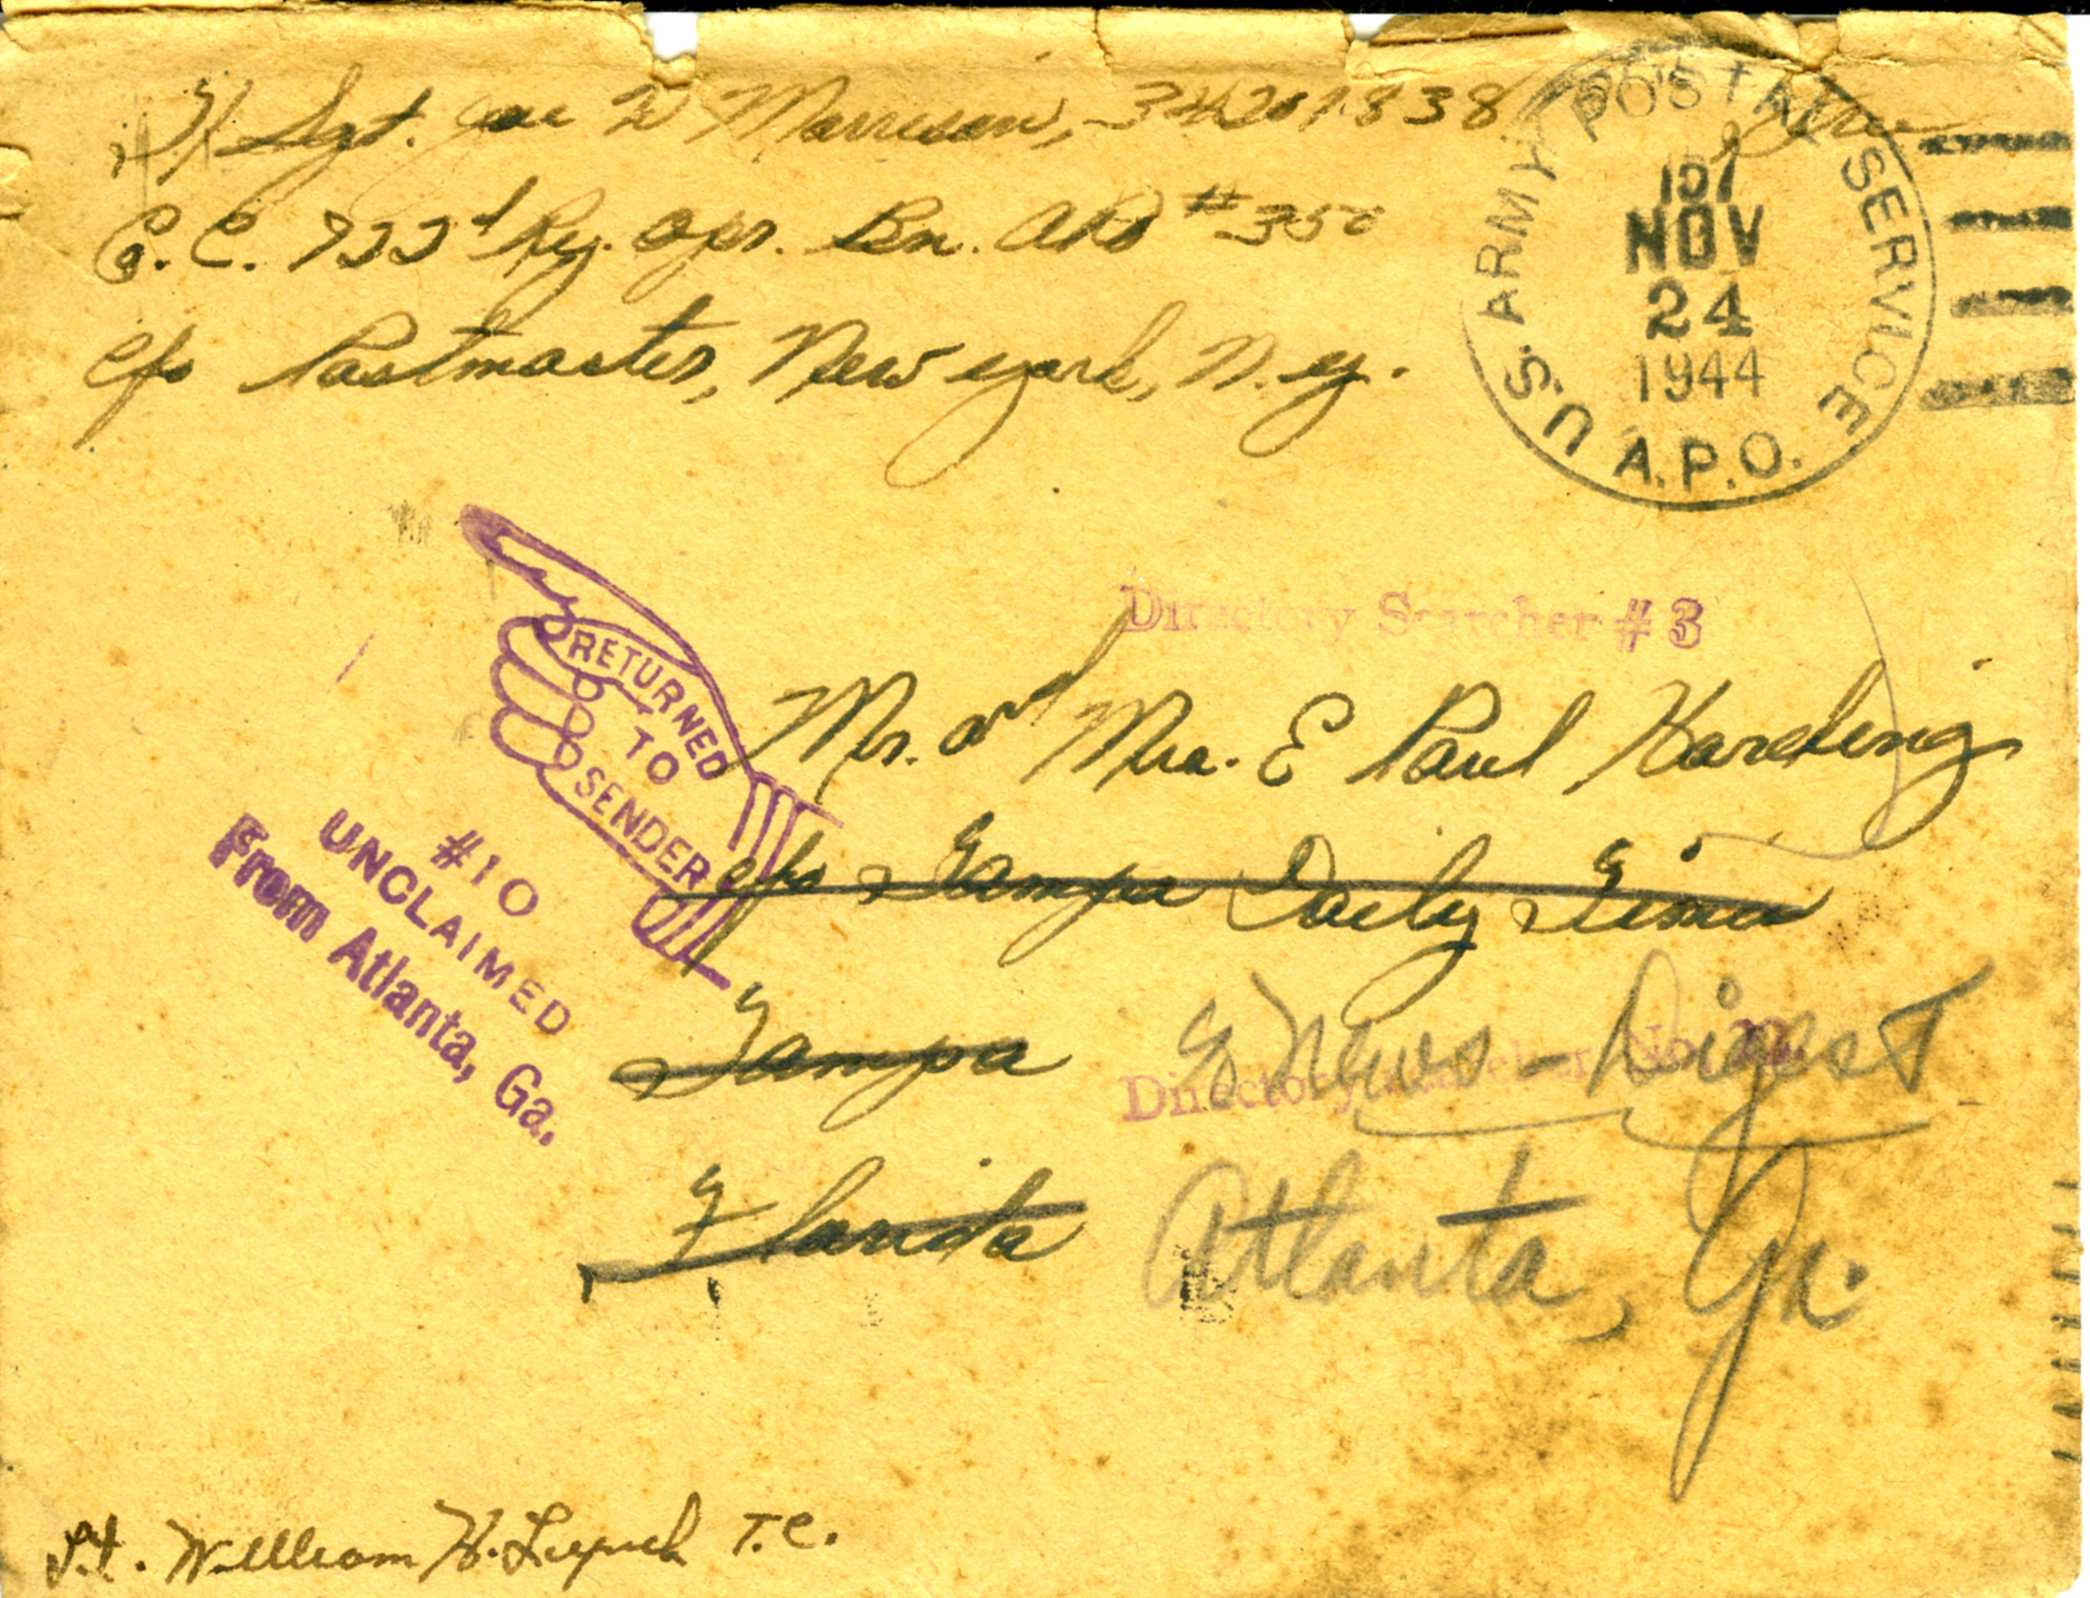 T/Sgt. Joe W Morrison, 34201838 Free
Co. C. 722d Ry. Opr. Bn. APO #350
c/o Postmaster, New York, N.Y.
U.S. ARMY POSTAL SERVICE
A.P.O.
NOV
24
1944
Directory Searcher #3
RETURNED
TO
SENDER
#10
UNCLAIMED
From Atlanta, Ga.
Mr. and Mrs. E Paul Harding
c/o Tampa Daily Times
Tampa
Florida
% News-Digest
Directory No.
Atlanta, Ga.
Lt. William H. T.C.